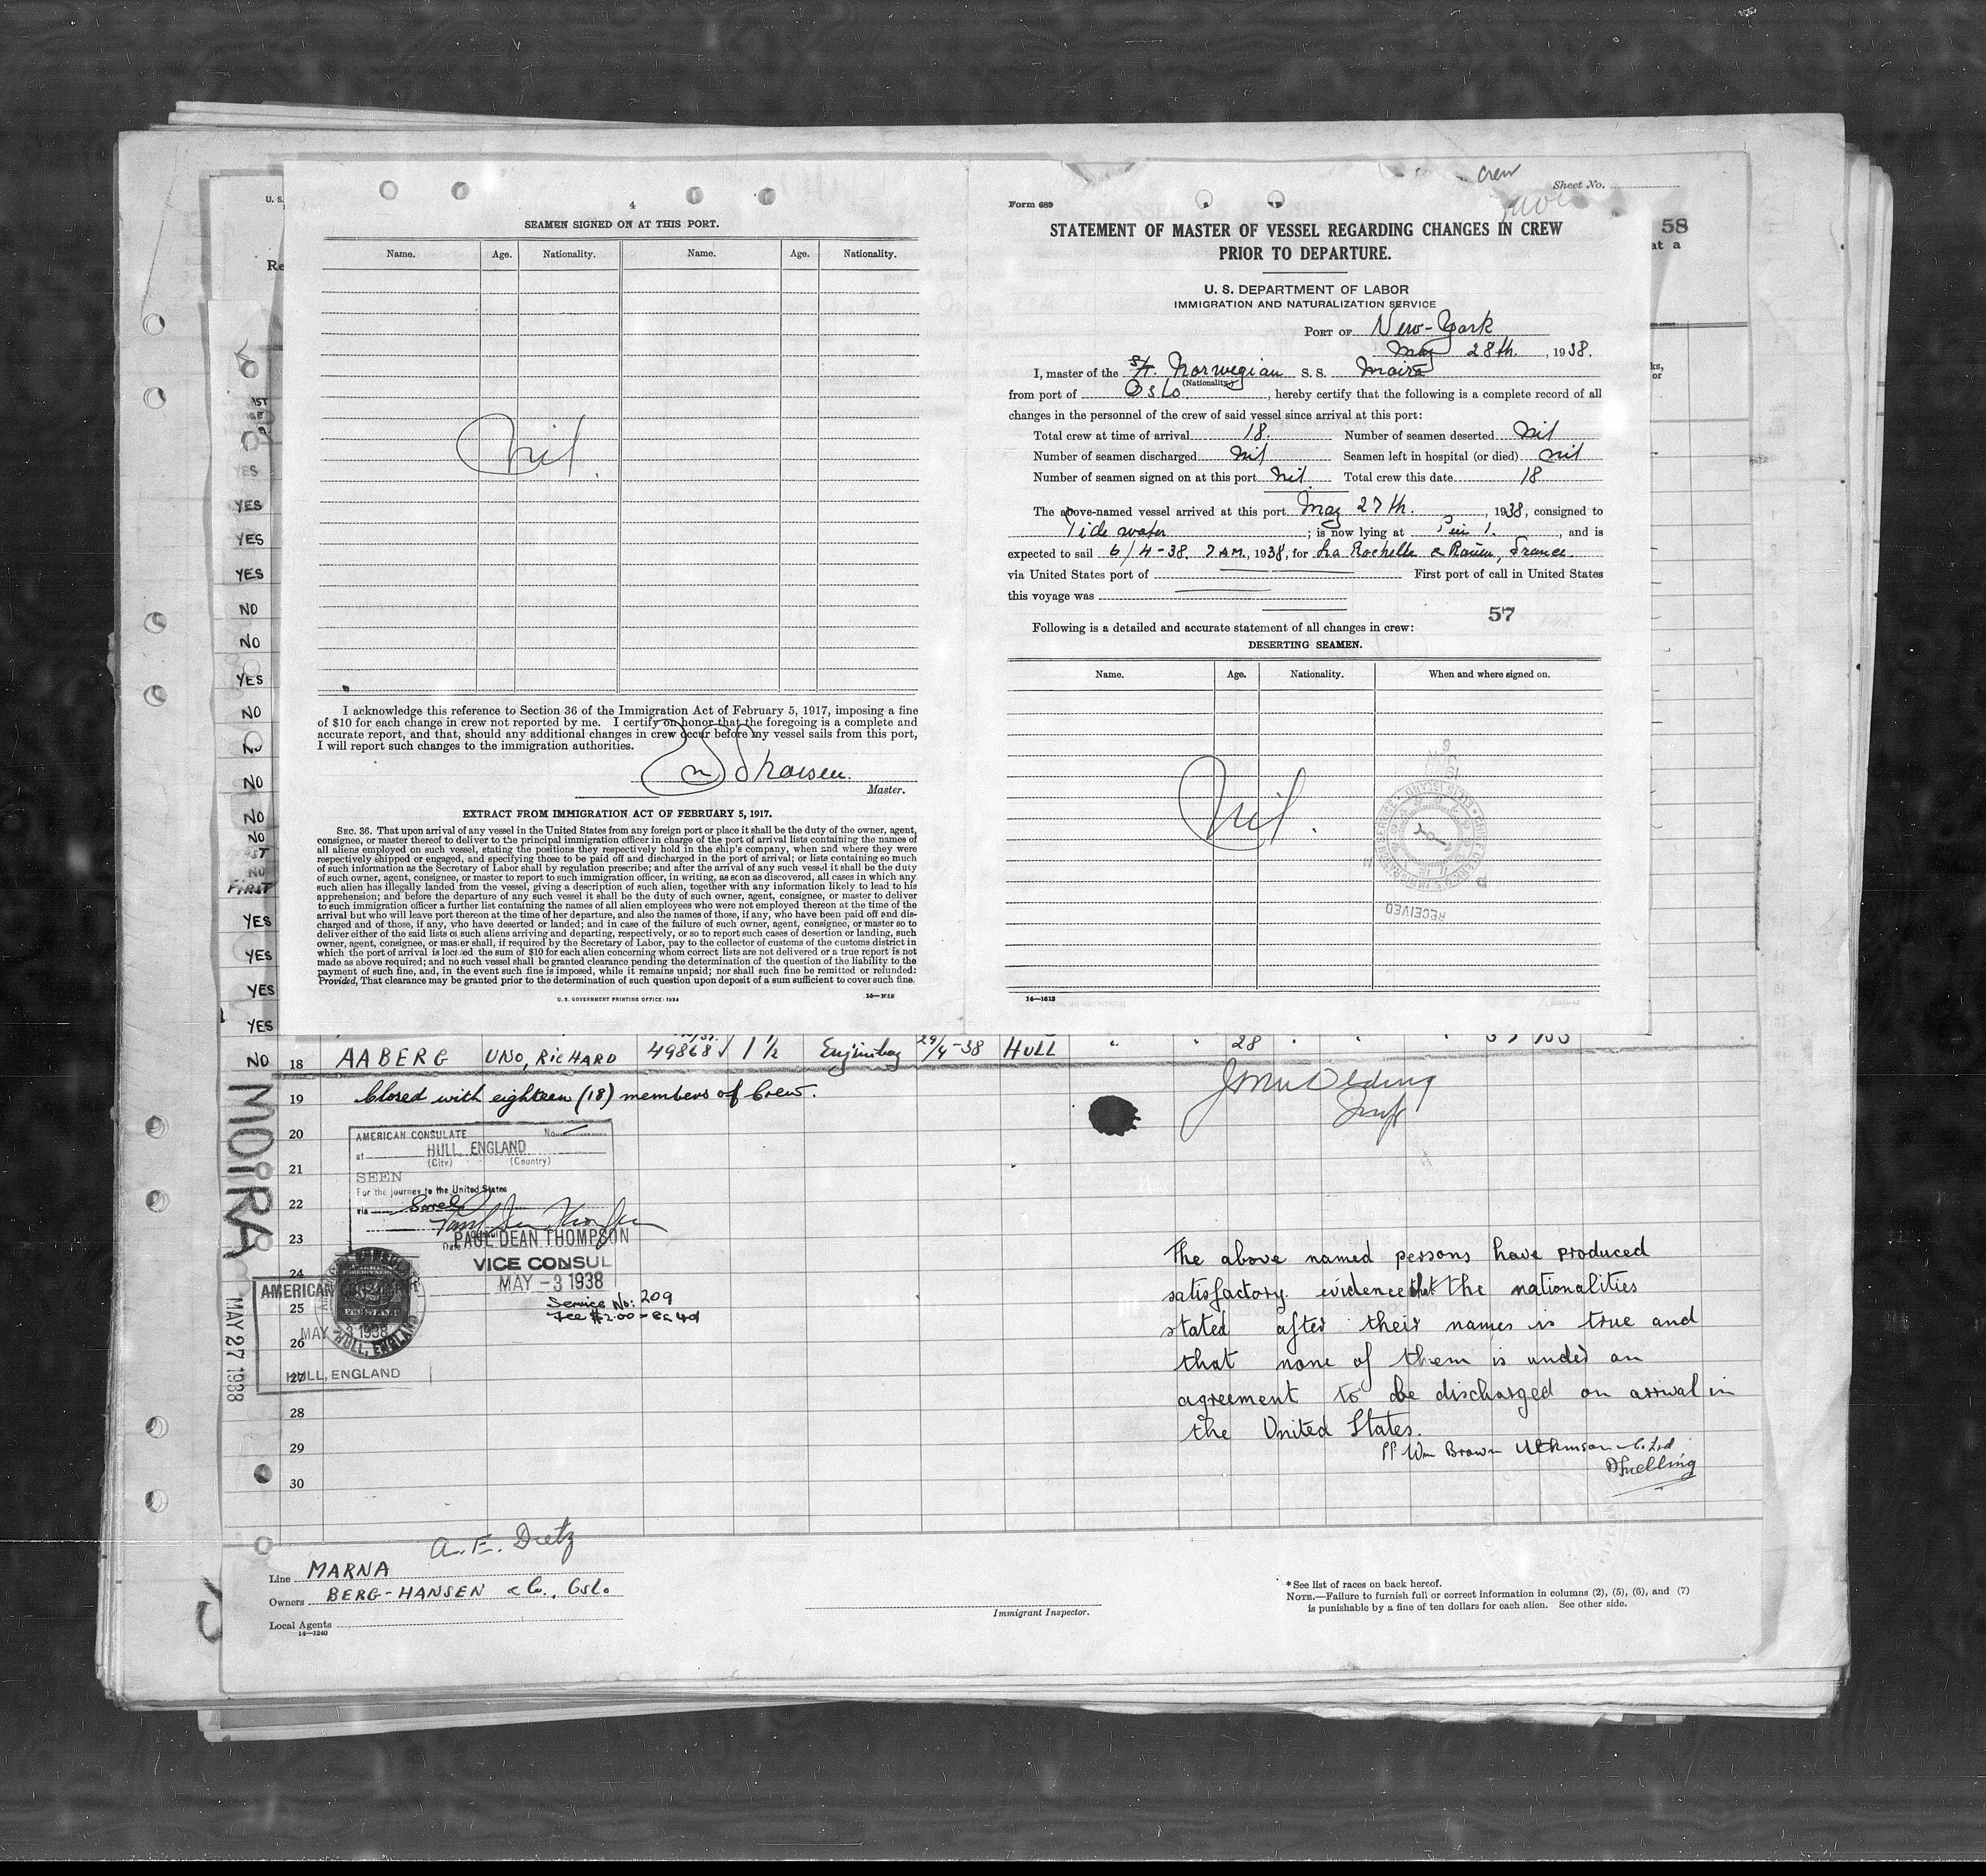 4
SEAMEN SIGNED ON AT THIS PORT.
Name. Age. Nationality. Name. Age. Nationality.
nil.
I acknowledge this reference to Section 36 of the Immigration Act of February 5, 1917, imposing a fine
of $10 for each change in crew not reported by me. I certify on honor that the foregoing is a complete and
accurate report, and that, should any additional changes in crew occur before my vessel sails from this port,
I will report such changes to the immigration authorities.
Master.
EXTRACT FROM IMMIGRATION ACT OF FEBRUARY 5, 1917.
SEC. 36. That upon arrival of any vessel in the United States from any foreign port or place it shall be the duty of the owner, agent,
consignee, or master thereof to deliver to the principal immigration officer in charge of the port of arrival lists containing the names of
all aliens employed on such vessel, stating the positions they respectively hold in the ship's company, when and where they were
respectively shipped or engaged, and specifying those to be paid off and discharged in the port of arrival; or lists containing so much
of such information as the Secretary of Labor shall by regulation prescribe; and after the arrival of any such vessel it shall be the duty
of such owner, agent, consignee, or master to report to such immigration officer, in writing, as soon as discovered, all cases in which any
such alien has illegally landed from the vessel, giving a description of such alien, together with any information likely to lead to his
apprehension; and before the departure of any such vessel it shall be the duty of such owner, agent, consignee, or master to deliver
to such immigration officer a further list containing the names of all alien employees who were not employed thereon at the time of the
arrival but who will leave port thereon at the time of her departure, and also the names of those, if any, who have been paid off and dis-
charged and of those, if any, who have deserted or landed; and in case of the failure of such owner, agent, consignee, or master so to
deliver either of the said lists of such aliens arriving and departing, respectively, or so to report such cases of desertion or landing, such
owner, agent, consignee, or master shall, if required by the Secretary of Labor, pay to the collector of customs of the customs district in
which the port of arrival is located the sum of $10 for each alien concerning whom correct lists are not delivered or a true report is not
made as above required; and no such vessel shall be granted clearance pending the determination of the question of the liability to the
payment of such fine, and, in the event such fine is imposed, while it remains unpaid; nor shall such fine be remitted or refunded:
Provided, That clearance may be granted prior to the determination of such question upon deposit of a sum sufficient to cover such fine.
U. S. GOVERNMENT PRINTING OFFICE: 1934
crew
Sheet No.
Form 689
STATEMENT OF MASTER OF VESSEL REGARDING CHANGES IN CREW
PRIOR TO DEPARTURE.
U. S. DEPARTMENT OF LABOR
IMMIGRATION AND NATURALIZATION SERVICE
PORT OF New-York
May 28th., 1938.
I, master of the Norwegian S. S. Moira
(Nationality)
from port of Oslo., hereby certify that the following is a complete record of all
changes in the personnel of the crew of said vessel since arrival at this port:
Total crew at time of arrival 18. Number of seamen deserted nil
Number of seamen discharged nil Seamen left in hospital (or died) nil
Number of seamen signed on at this port nil. Total crew this date 18
The above-named vessel arrived at this port May 27th., 1938, consigned to
Tide water; is now lying at 1., and is
expected to sail 6/4-38. 7 AM., 1938, for La Rochelle & Rouen, France.
via United States port of First port of call in United States
this voyage was
57
Following is a detailed and accurate statement of all changes in crew:
DESERTING SEAMEN.
Name. Age. Nationality. When and where signed on.
nil.
RECEIVED
14—1613
58
at a
U. S.
Re
YES
YES
YES
YES
NO
NO
YES
NO
NO
NO
NO
NO
NO
FIRST
YES
YES
YES
YES
NO 18 AABERG UNO, RICHARD 49868 1 1/2 29/4-38 HULL " " 28 " "
19 Closed with eighteen (18) members of Crew.
20
21
22
23
24
25
26
27
28
29
30
MOIRA
MAY 27 1938
AMERICAN CONSULATE No.
at HULL, ENGLAND
(City) (Country)
SEEN
For the journey to the United States
via
PAUL DEAN THOMPSON
VICE CONSUL
MAY -3 1938
Service No: 209
Fee $2.00
AMERICAN
FEE STAMP
MAY 3 1938
HULL, ENGLAND
HULL, ENGLAND
The above named persons have produced
satisfactory evidence that the nationalities
stated after their names is true and
that none of them is under an
agreement to be discharged on arrival in
the United States.
pp Wm Brown Atkinson & Co. Ltd.
Snelling
A. E. Dietz
Line MARNA
Owners BERG-HANSEN & Co., Oslo
Local Agents
14—1240
Immigrant Inspector.
* See list of races on back hereof.
NOTE.—Failure to furnish full or correct information in columns (2), (5), (6), and (7)
is punishable by a fine of ten dollars for each alien. See other side.